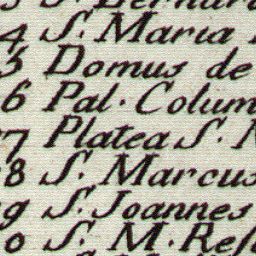 S. Bernar
4 S. Maria
5 Domus de
6 Pal. Colum
7 Platea S.
8 S. Marcus
9 S. Joannes
0 S. M. Res